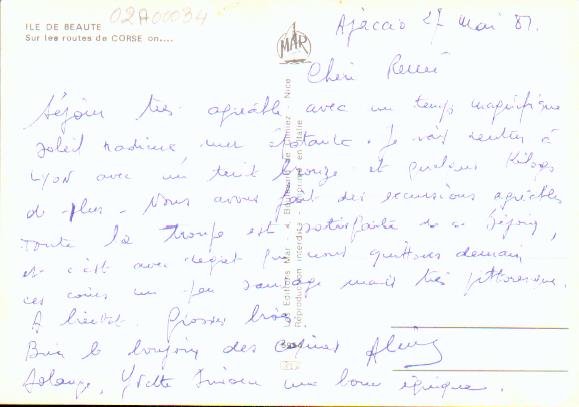 02A00034
ILE DE BEAUTE
Sur les routes de CORSE on....
MAR
Les Editions Mar - Nice
Reproduction interdite - Imprimé en Italie
Ajaccio 27 Mai 81.
Chère Renée
Séjour très agréable avec un temps magnifique
soleil radieux mer épatante. Je vais rentrer à
LYON avec un teint bronzé et quelques Kilogs
de plus - Nous avons fait des excursions agréables
toute la troupe est satisfaite de ce séjour,
et c'est avec regret que nous quittons demain
ces coins un peu sauvage mais très pittoresque.
A bientôt. Grosses bises
le bonjour des copines
Solange, Yvette une bonne équipe.